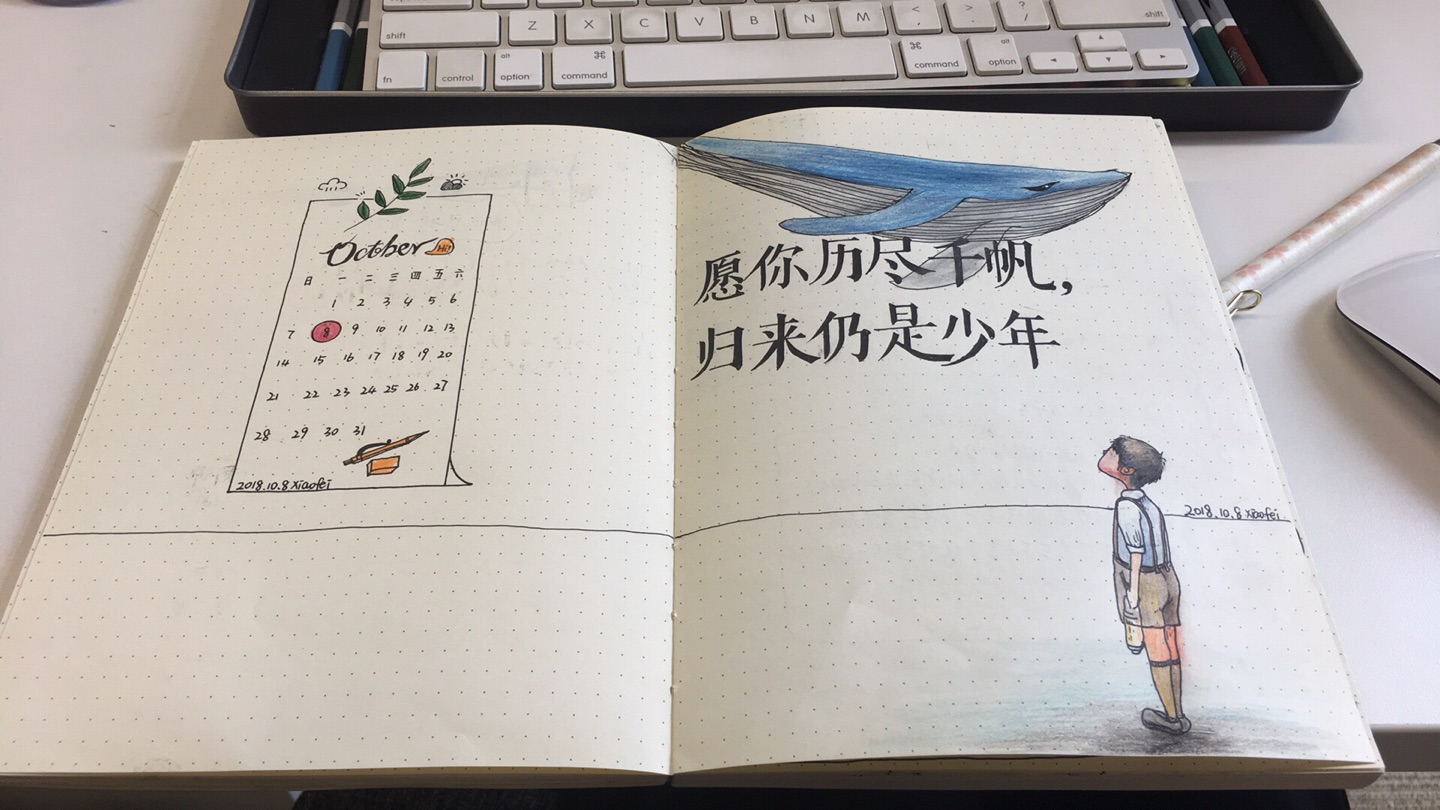 shift Z X C V B N M < , > . ? / shift
fn control alt option ⌘ command ⌘ command alt option ◄ ▲ ▼ ►
October Hi!
日 一 二 三 四 五 六
1 2 3 4 5 6
7 8 9 10 11 12 13
14 15 16 17 18 19 20
21 22 23 24 25 26 27
28 29 30 31
2018.10.8 Xiaofei
愿你历尽千帆，
归来仍是少年
2018.10.8 Xiaofei